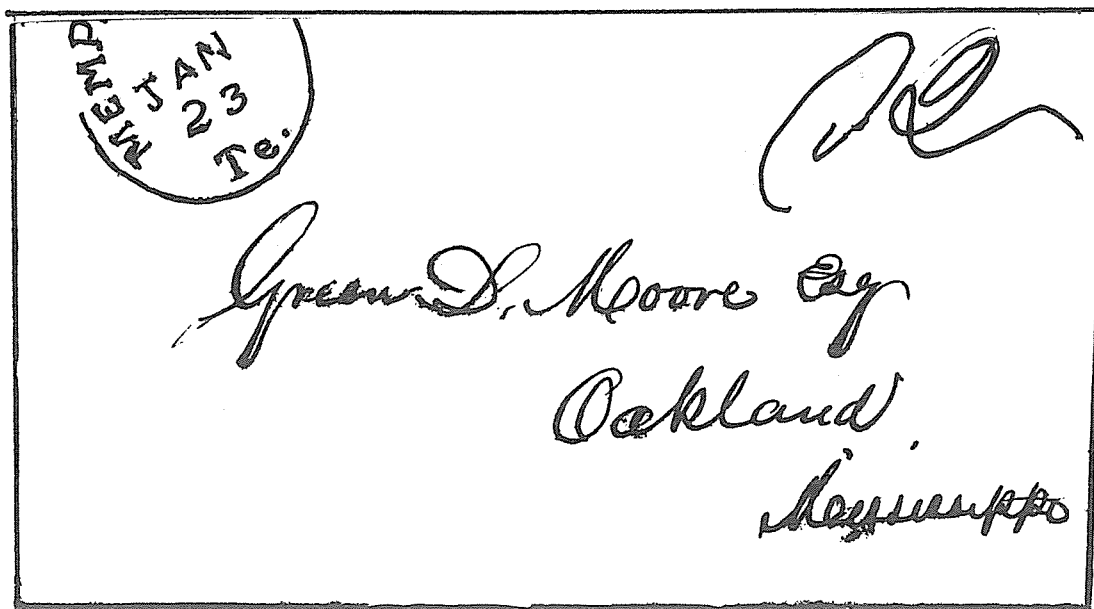 MEMP
JAN
23
Te.
Green D. Moore Esq
Oakland
Mississippi